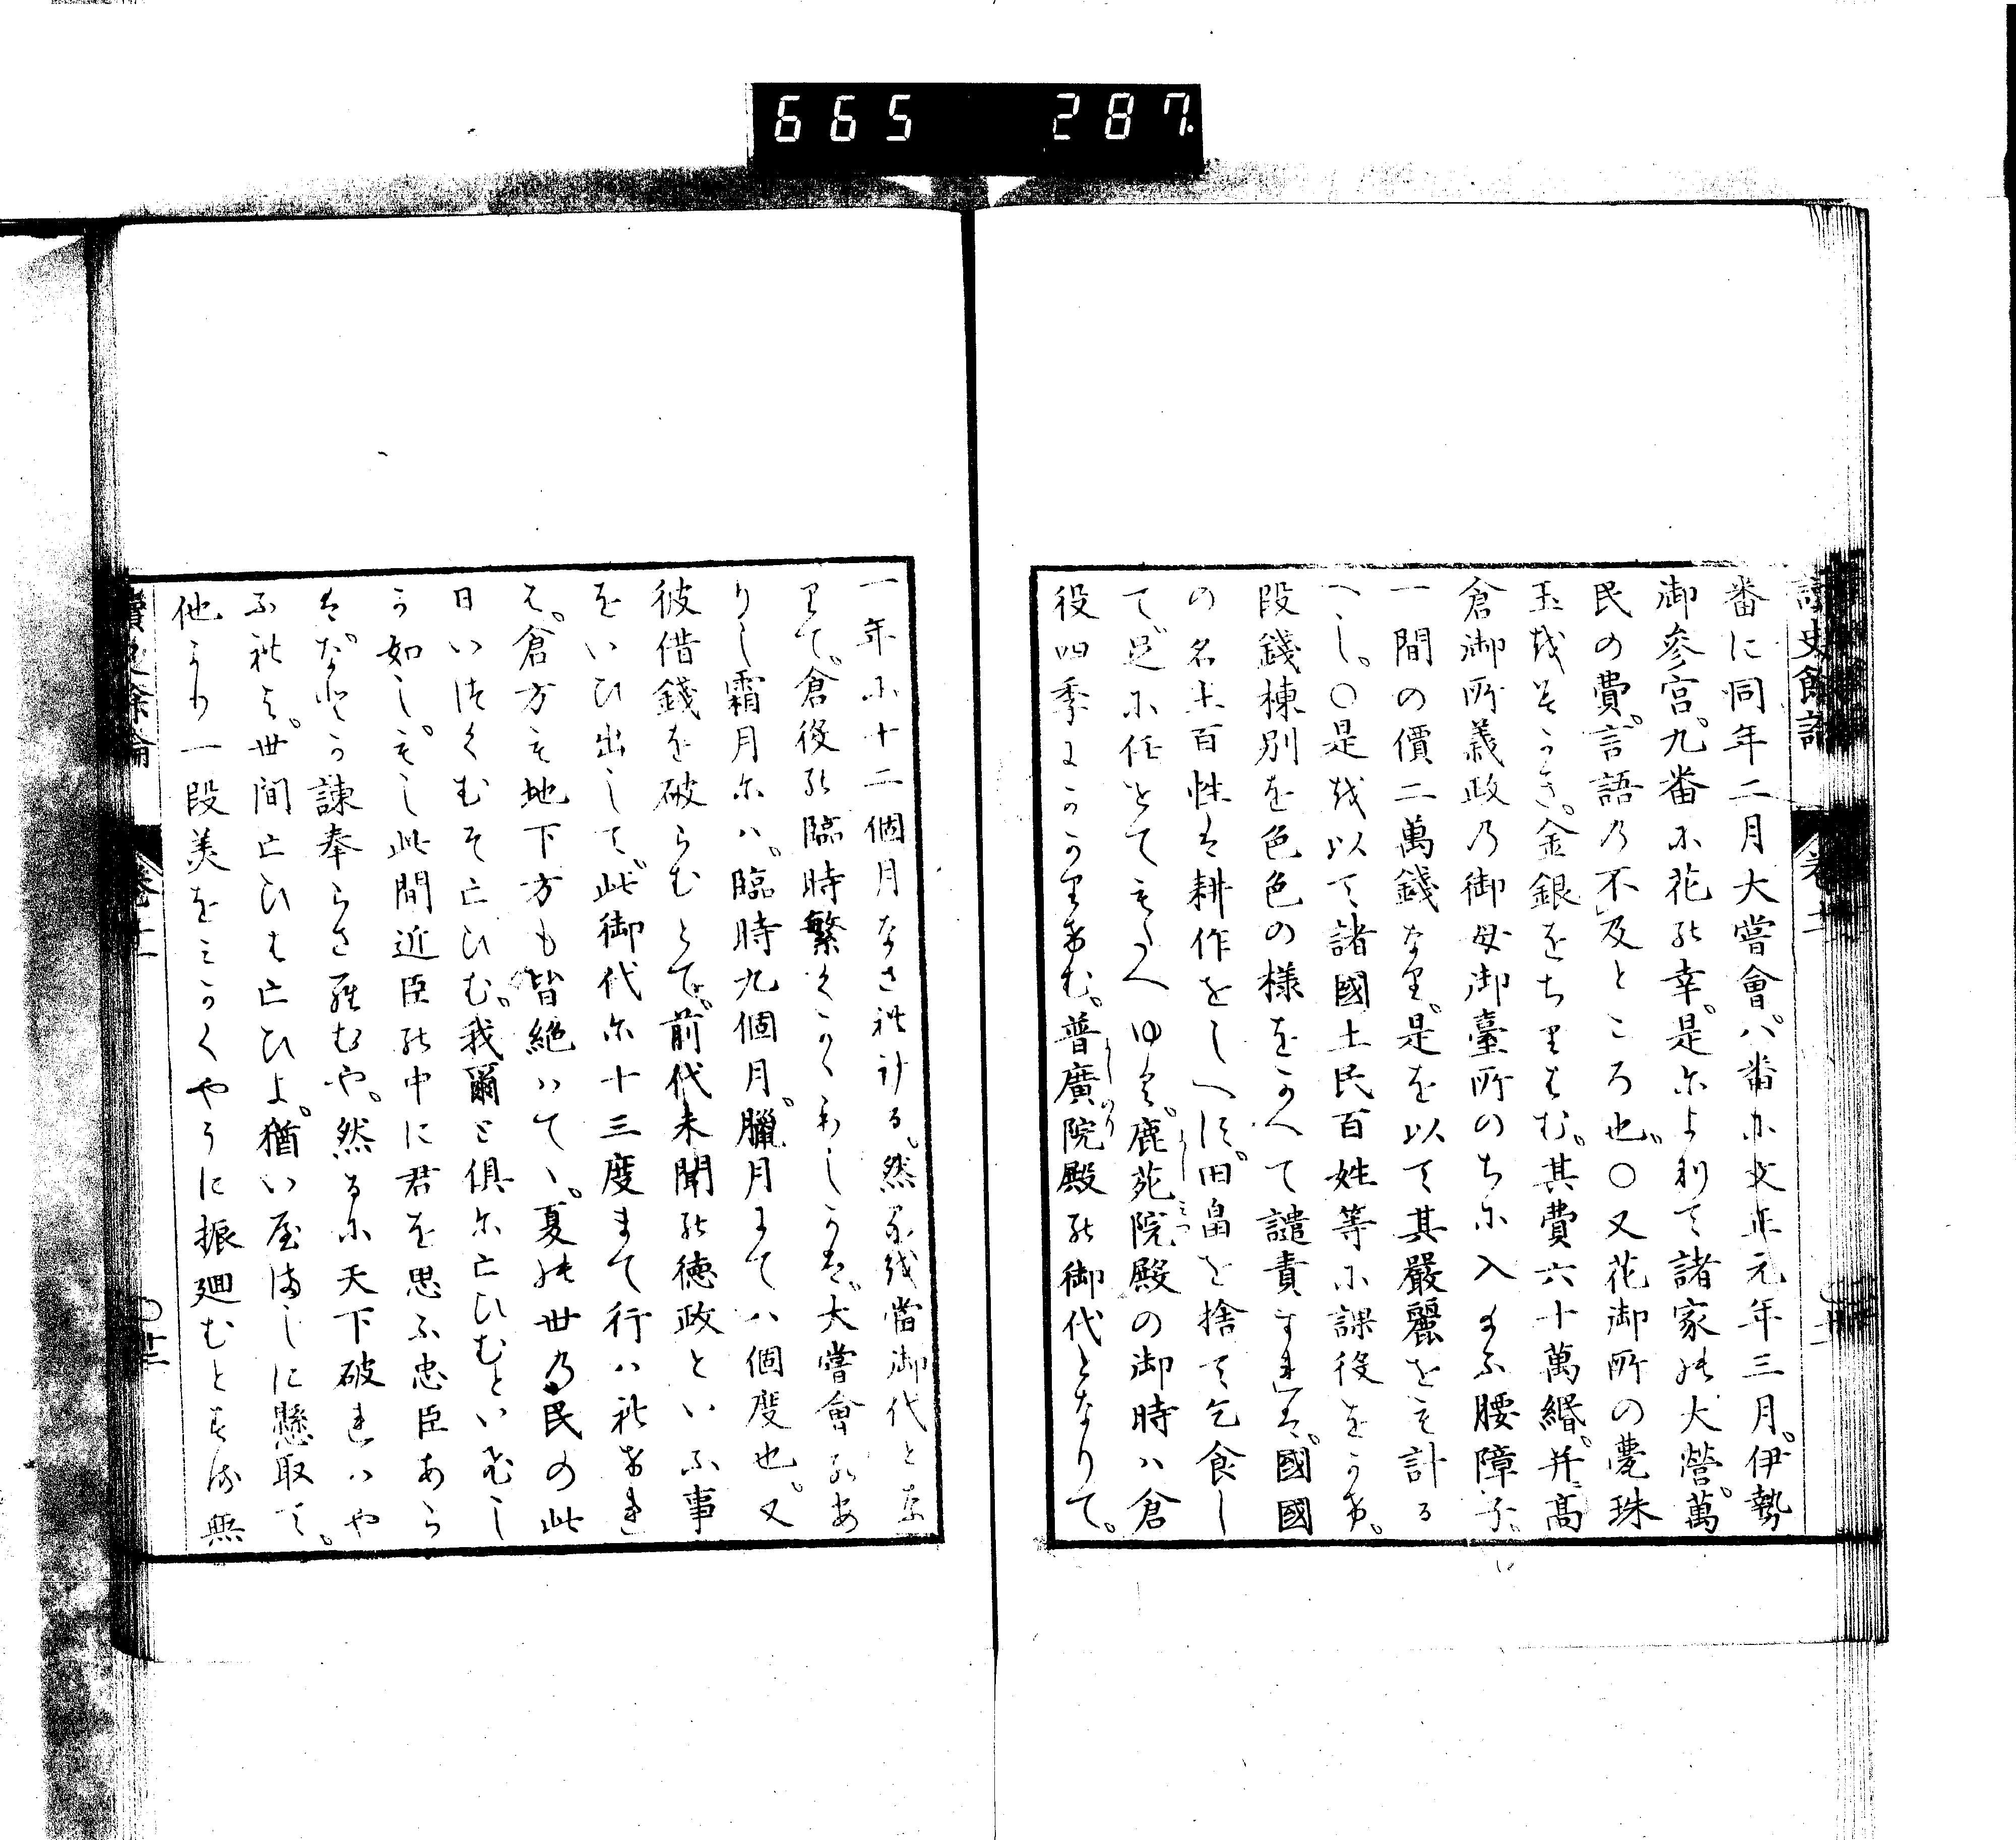 665 287.
讀史餘論
番に同年二月大嘗會。八番ニ文正元年三月。伊勢
御參宮。九番ニ花の幸。是によりて諸家の大營。萬
民の費。言語の不及ところ也。〇又花御所の甍珠
玉をみかき。金銀をちりはむ。其費六十萬緡。并高
倉御所義政の御母御臺所のちに入まふ腰障子。
一間の價二萬錢なり。是を以て其嚴麗をも計る
へし。〇是を以て諸國土民百姓等に課役をかけ。
段錢棟別を色色の樣をかへて譴責すれは。國國
の名主百性は耕作をしへす。田畠を捨て乞食し
て。足に任せてもたへゆく。鹿苑院殿の御時ハ倉
よしみつ
役四季にかかりけむ。普廣院殿の御代となりて。
よしのり
一年に十二個月なされける。然るを當御代とな
りて。倉役の臨時繁くかくわしかは。大嘗會のあ
りし霜月にハ。臨時九個月。臘月にてハ個度也。又
彼借錢を破らむとて。前代未聞の徳政といふ事
をいひ出して。此御代に十三度まて行ハれけれ
は。倉方も地下方も皆絶ハてゝ。夏の世の民の此
日いつくむそ亡ひむ。我爾と俱に亡ひむといひし
か如し。もし此間近臣の中に君を思ふ忠臣あら
は。などか諫奉らさらむや。然るに天下破れハや
ふれよ。世間亡ひは亡ひよ。猶いやましに懸取て。
他より一段美をみかくやうに振廻むとする無
讀史餘論